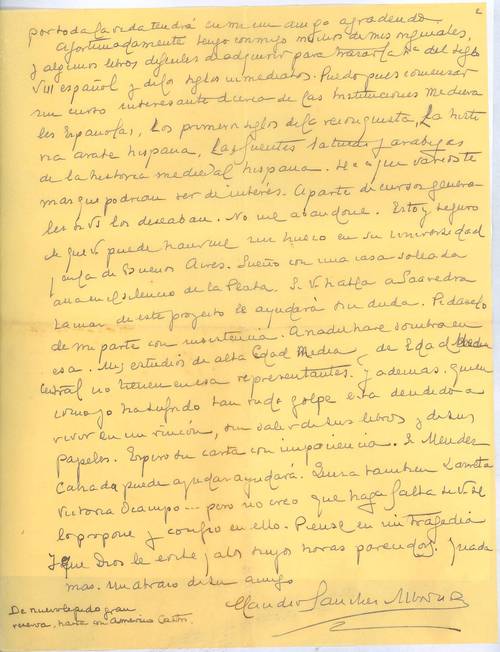 2
por toda la vida tendrá en mi un amigo agradecido
Afortunadamente tengo conmigo muchos de mis originales,
y algunos libros dificiles de adquirir para trazar la Hª del siglo
VIII español y de los siglos inmediatos. Puedo pues comenzar
un curso interesante acerca de las Instituciones medieva
les Españolas, Los primeros siglos de la reconquista, La histo
ria arabe hispana, Las fuentes latinas y arabigas
de la historia medieval hispana. que varios te
mas que podrian ser de interés. Aparte de cursos genera
les si Vs los deseaban. No me abandone. Estoy seguro
de que V puede hacerme un hueco en su Universidad
junta de Buenos Aires. Sueño con una casa soleada
en el silencio de la Plata. Si V habla a Saavedra
Lamas de este proyecto le ayudará sin duda. Pidaselo
de mi parte con insistencia. A nadie hare sombra en
esa. Mis estudios de alta Edad Media y de Edad Media
Central no tienen en esa representantes. y ademas quien
como yo ha sufrido tan rudo golpe esta decidido a
vivir en un rincón, sin salir de sus libros y de sus
papeles. Espero su carta con impaciencia. Si Mendez
Calzada puede ayudar ayudará. Quiza tambien Larreta
Victoria Ocampo... pero no creo que haga falta si V se
lo propone y confio en ello. Piense en mi tragedia
y que Dios le evite a los suyos horas parecidas. y nada
mas. Un abrazo de su amigo
Claudio Sánchez Albornoz
De nuevo le pido gran
reserva, hasta con Américo Castro.